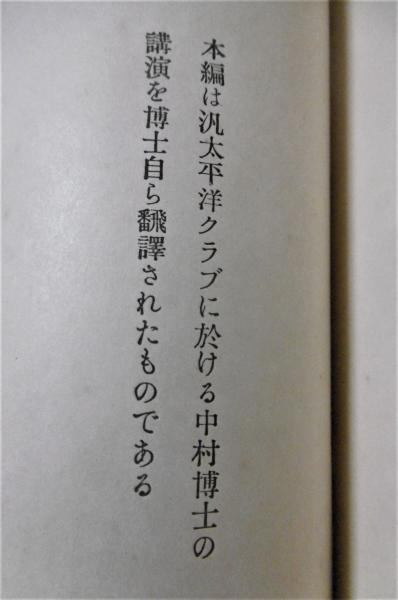 本編は汎太平洋クラブに於ける中村博士の
講演を博士自ら飜譯されたものである